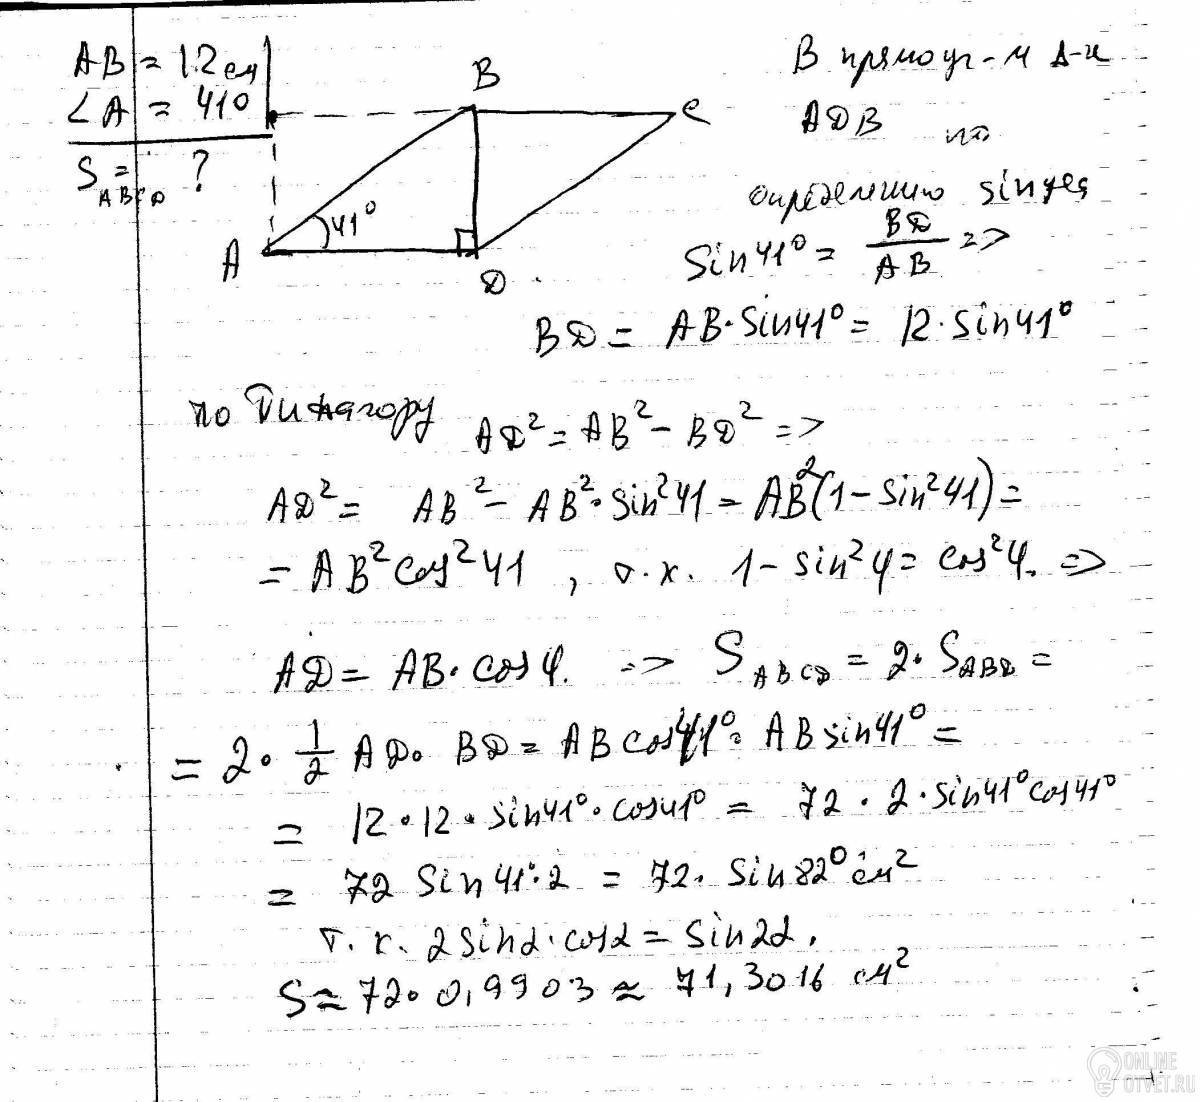 AB = 12 см
∠A = 41°
S ABCD = ?
B
C
41°
A
D
В прямоуг-м Δ-к
ADB по
определению sinуса
Sin 41° = BD/AB =>
BD = AB·Sin41° = 12·Sin41°
по Пифагору AD² = AB² - BD² =>
AD² = AB² - AB²·Sin²41 = AB²(1 - Sin²41) =
= AB²Cos²41, т.к. 1 - sin²φ = cos²φ. =>
AD = AB·cosφ. => S ABCD = 2·S ABD =
= 2·1/2 AD·BD = ABcos41°·ABsin41° =
= 12·12·sin41°·cos41° = 72·2·sin41°cos41°
= 72 Sin41°·2 = 72·Sin82° см²
т.к. 2Sinα·cosα = Sin2α.
S ≈ 72·0,9903 ≈ 71,3016 см²
ONLINE
OTVET.RU